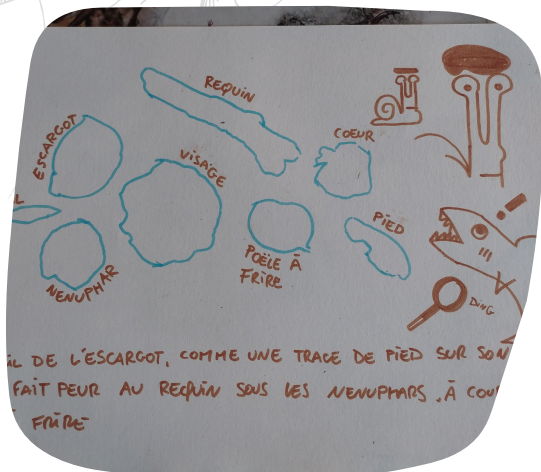 REQUIN
ESCARGOT
COEUR
VISAGE
PIED
POËLE À
FRIRE
NENUPHAR
DING
DE L'ESCARGOT, COMME UNE TRACE DE PIED SUR SON
FAIT PEUR AU REQUIN SOUS LES NENUPHARS. À
FRIRE